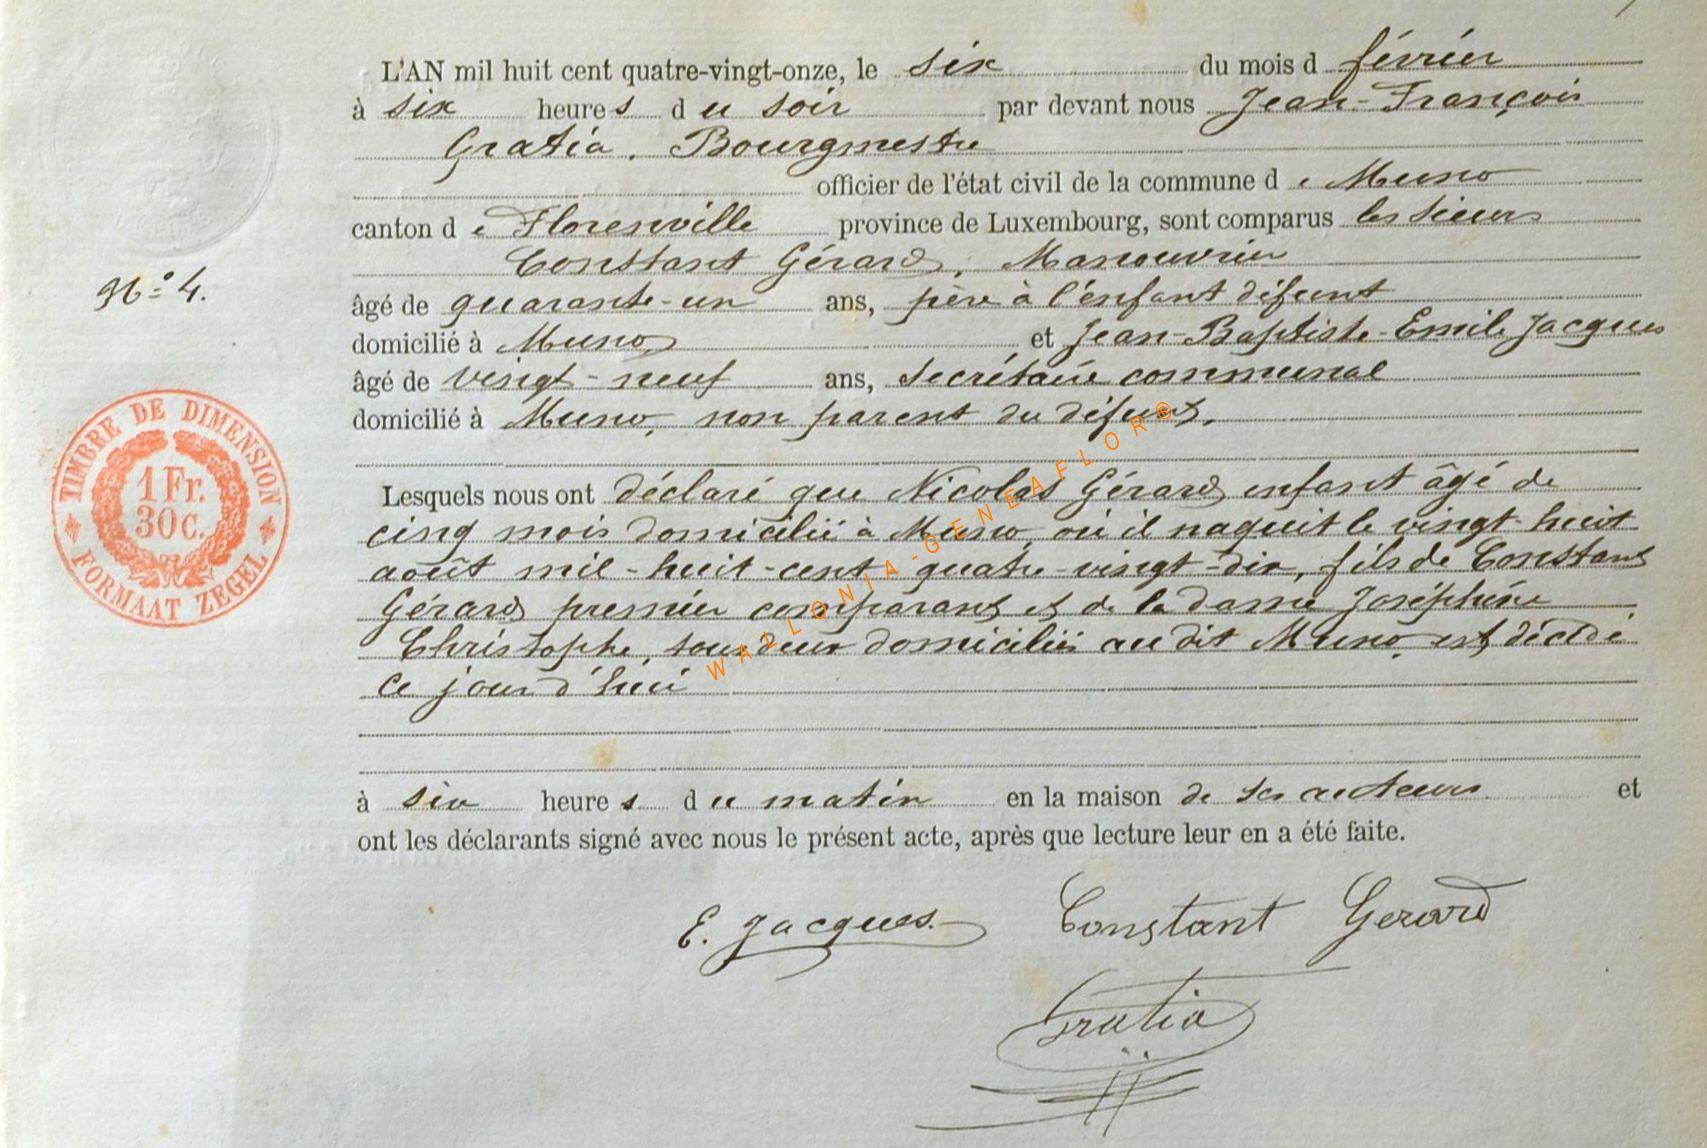 L'AN mil huit cent quatre-vingt-onze, le six du mois d février
à six heures du soir par devant nous Jean-François
Gratia, Bourgmestre
officier de l'état civil de la commune de Muno
canton de Florenville province de Luxembourg, sont comparus les sieurs
Constant Gérard, Manouvrier
N° 4.
âgé de quarante-un ans, père à l'enfant défunt
domicilié à Muno et Jean-Baptiste-Emile Jacques
âgé de vingt-neuf ans, secrétaire communal
domicilié à Muno, non parent du défunt,
TIMBRE DE DIMENSION
1 Fr.
30 C.
FORMAAT ZEGEL
Lesquels nous ont déclaré que Nicolas Gérard enfant âgé de
cinq mois domicilié à Muno, où il naquit le vingt-huit
août mil-huit-cent quatre-vingt-dix, fils de Constant
Gérard premier comparant et de la dame Joséphine
Christophe, tous deux domiciliés au dit Muno, est décédé
ce jour d'hui
WALLONIA-GENEAFLOR®
à six heures du matin en la maison de ses auteurs et
ont les déclarants signé avec nous le présent acte, après que lecture leur en a été faite.
E. Jacques. Constant Gerard
Gratia